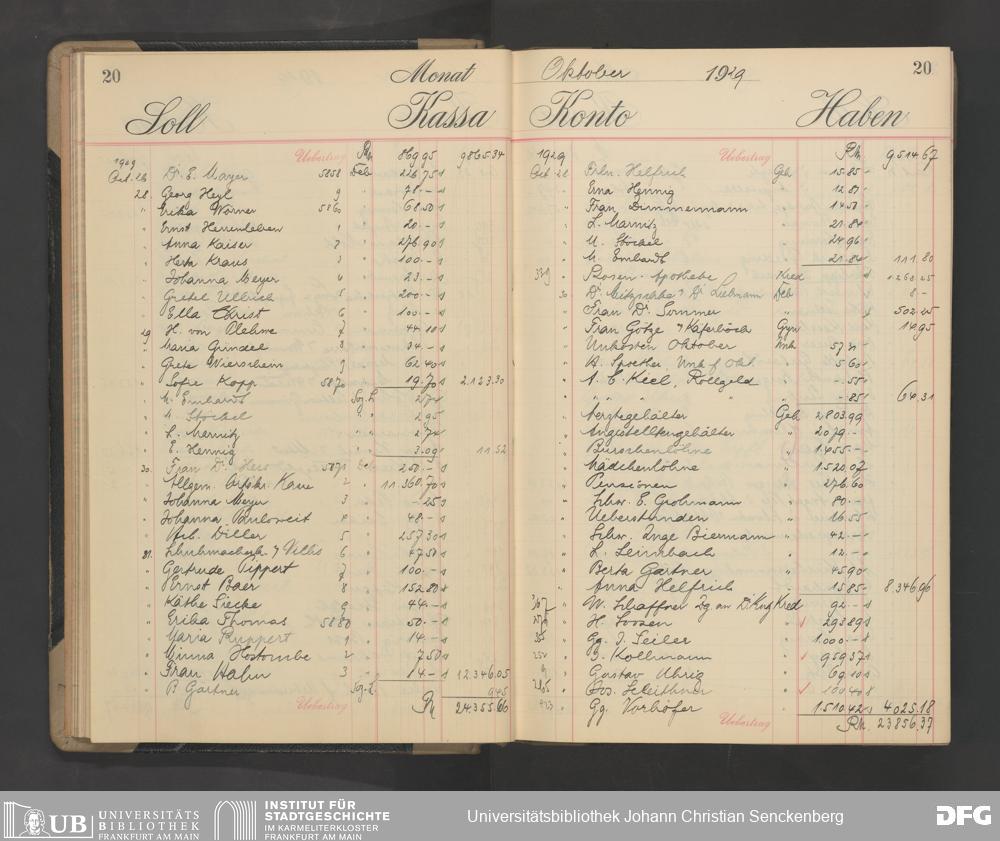 20 Monat
Soll Kassa
Uebertrag Rm 869 95 9865.34
1929
Oct. 26 Dr. E. Mayer 5858 Deb 226.75
28 Georg Heyl 9 78.-
" Erika Wörner 5860 68.50
" Ernst Herrenleben 1 20.-
" Anna Kaiser 2 276.90
" Herta Kraus 3 100.-
" Johanna Meyer 4 23.-
" Gretel Ullrich 5 200.-
" Ella Christ 6 100.-
29 H. von Plehwe 7 44.10
" Maria Grindel 8 34.-
" Grete Wierschem 9 62.40
" Sofie Kopp 5870 19.70 2.123.30
" M. Embardt Soz. L 2.74
" U. Stöckel 2.95
" L. Marnitz 2.74
" E. Hennig 3.09 11.52
30 Frau Dr. Hess 5871 Deb 250.-
" Allgem. Kasse 2 11.360.70
" Johanna Meyer 3 -.25
" Johanna 4 48.-
" Diller 5 257.30
31. 6 47.50
" Gertrude Tippert 7 100.-
" Ernst Baer 8 152.80
" Käthe Siecke 9 44.-
" Erika Thomas 5880 50.-
" Maria Ruppert 1 14.-
" Minna 2 7.50
" Frau Hahn 3 14.- 12.346.05
" B. Gärtner Soz. L. 9.45
Uebertrag Rm 24355.66
Oktober 1929 20
Konto Haben
1929 Uebertrag Rm 9514 67
Oct. 28 Helfrich Geh 15.85
" Erna Hennig 12.81
" Frau Dimmermann 14.50
" L. Marnitz 21.84
" U. Stöckel 24.96
" M. Embardt 21.84 111.80
339 " Rosen-Apotheke Kred 1.260.25
30 Dr. Dr. Liebmann Deb 8.-
" Frau Dr. Sommer " 502.25
" Frau Götze Käferlöch Gyn 14.95
" Unkosten Oktober Unk 57.30
" A. Spoether, Unk. f. Okt. 5.60
" A. E. Kiel, Rollgeld -.55
" " " " -.85 64.31
" Aerztegehälter Geh 2803.99
" Angestelltengehälter " 2079.-
" Burschenlöhne " 1.455.-
" Mädchenlöhne " 1520.07
" Pensionen " 276.60
" Schw. E. Grohmann " 80.-
" Ueberstunden " 16.55
" Schw. Inge Biermann " 42.-
" L. Leimbach " 12.-
" Berta Gärtner " 45.90
" Anna Helfrich " 15.85 8.346.96
267 " W. Schaffner Kred 92.-
279 " H. Fossen " 293.89
335 " Gg. J. Seiler " 1.000.-
252 " J. Kollmann " 959.37
" Gustav Uhrig " 69.10
" Jos. Schleithner " 100.40
423 " Gg. Vorhöfer " 1.510.42 4.025.18
Uebertrag Rm. 23856.37
UB UNIVERSITÄTS
BIBLIOTHEK
FRANKFURT AM MAIN
INSTITUT FÜR
STADTGESCHICHTE
IM KARMELITERKLOSTER
FRANKFURT AM MAIN
Universitätsbibliothek Johann Christian Senckenberg
DFG